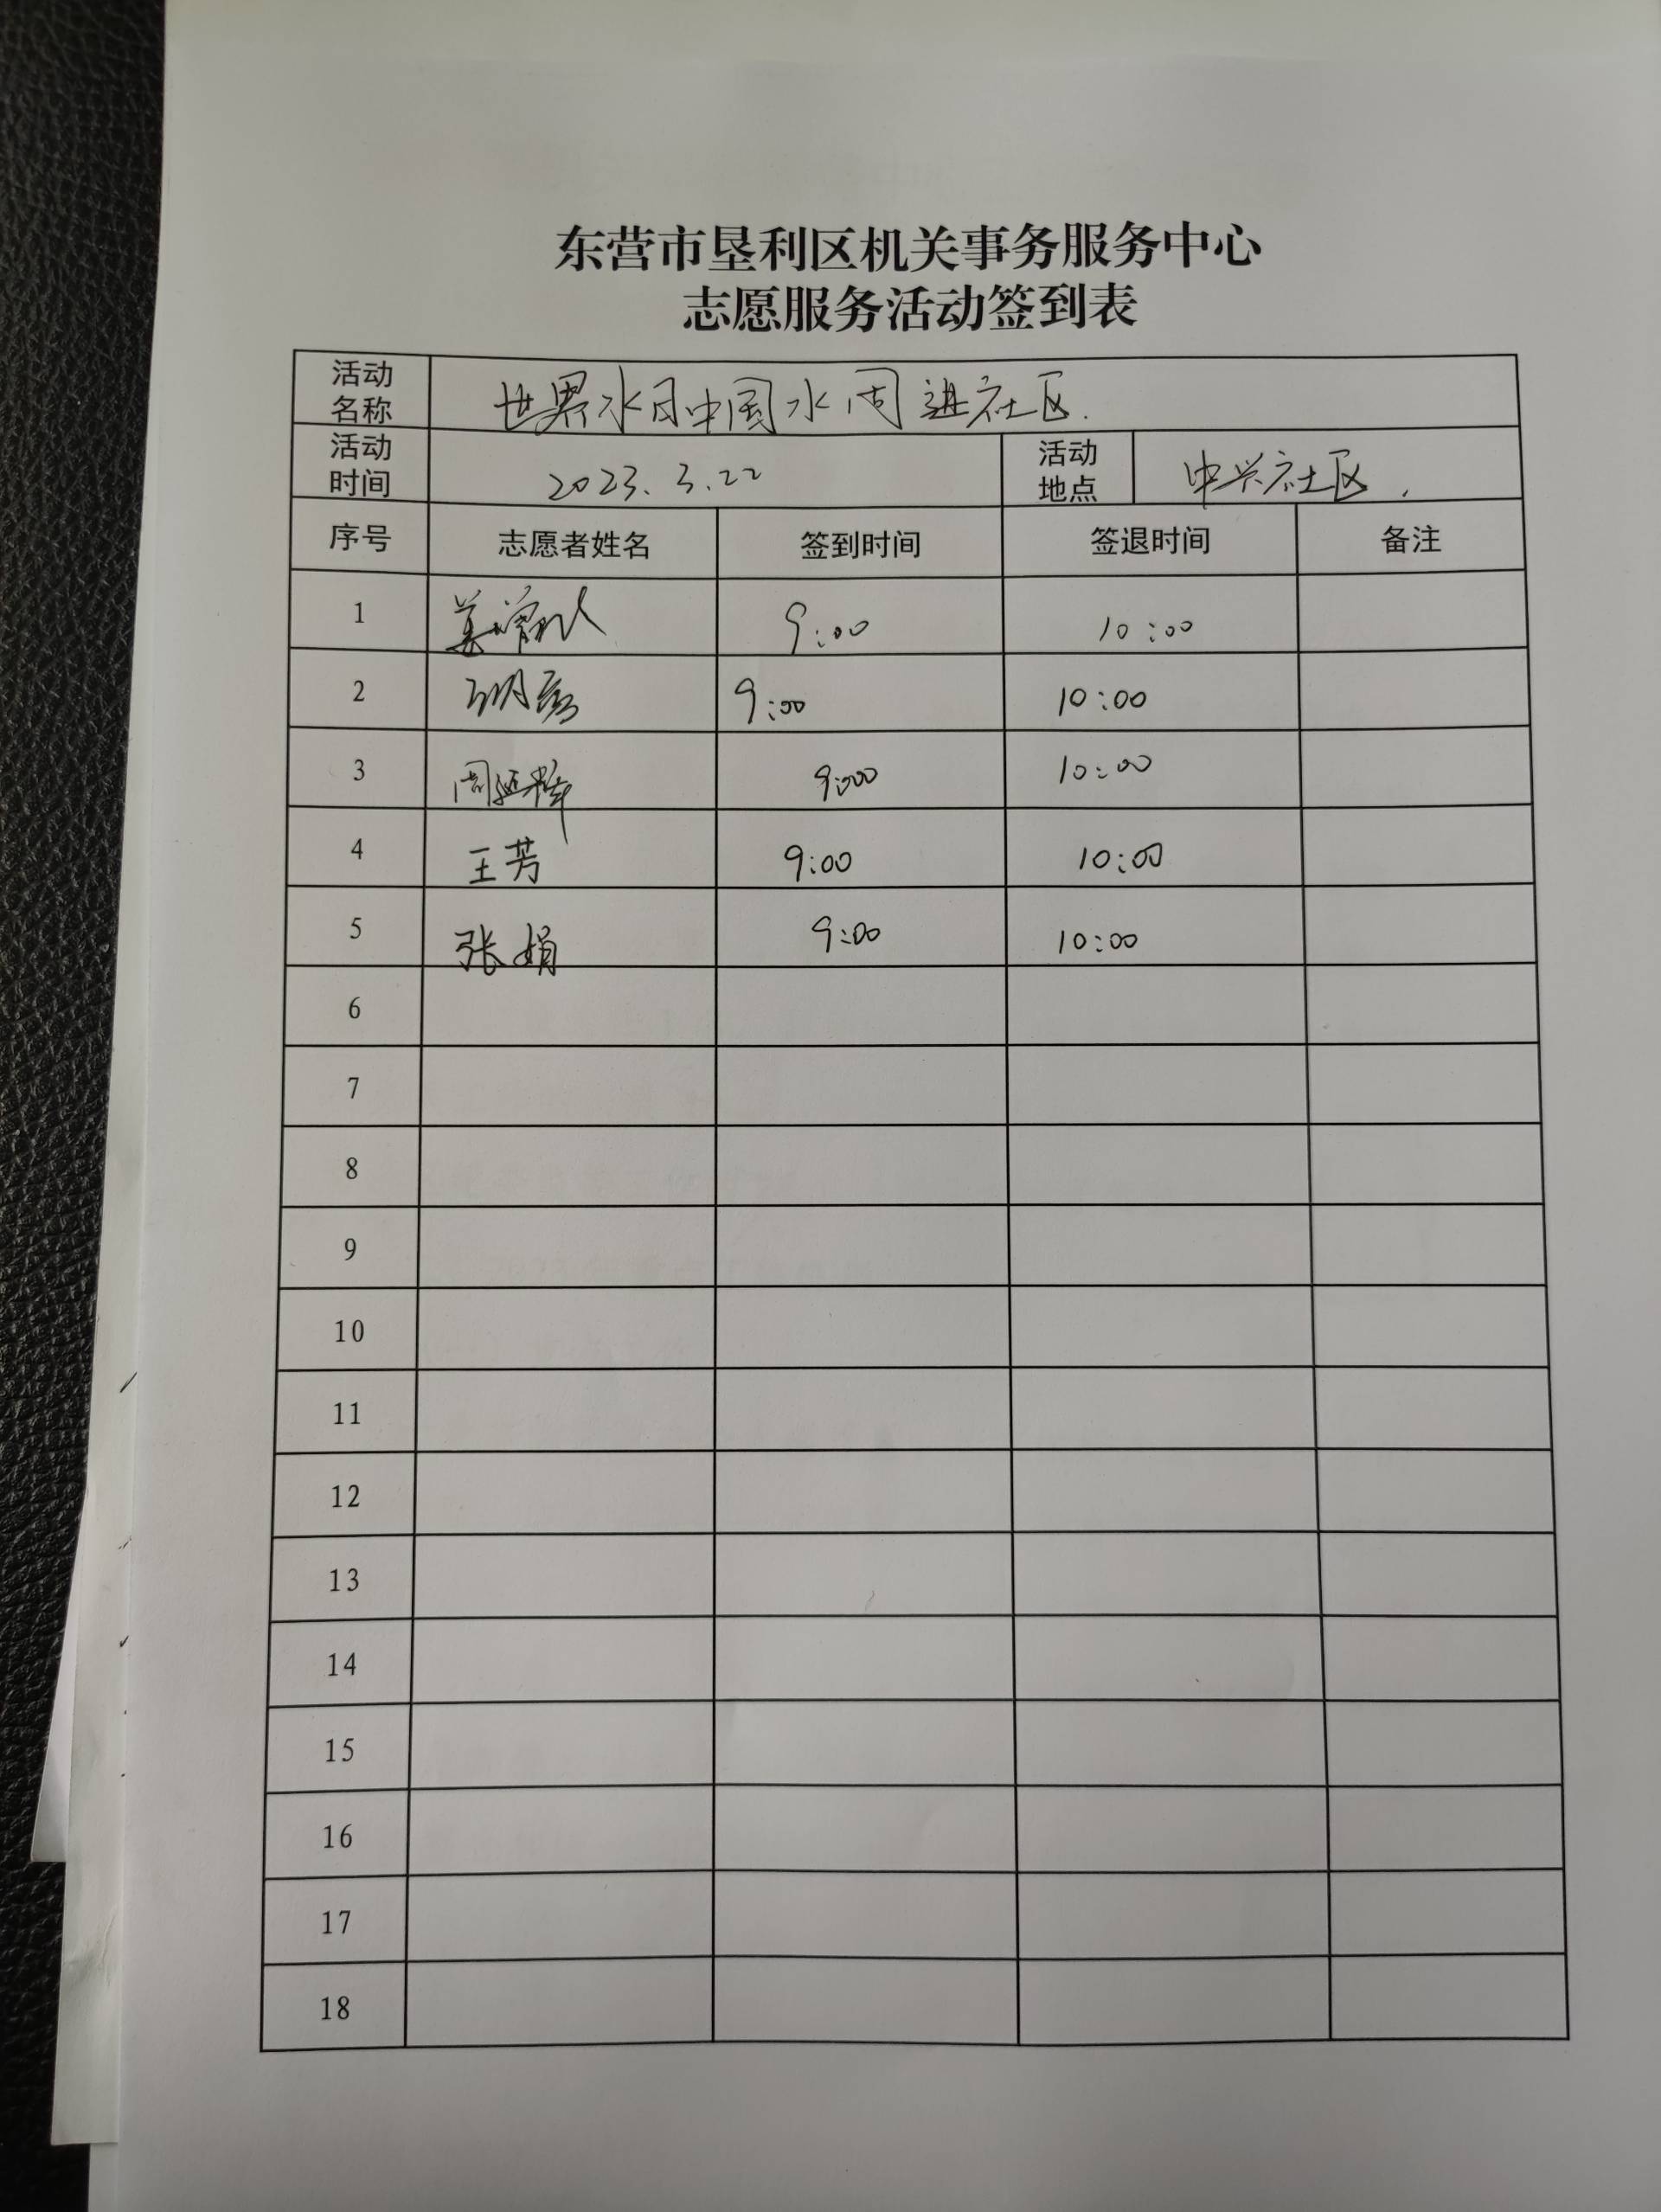 东营市垦利区机关事务服务中心
志愿服务活动签到表
活动名称 世界水日中国水周进社区.
活动时间 2023.3.22 活动地点 中兴社区.
序号 志愿者姓名 签到时间 签退时间 备注
1 9:00 10:00
2 9:00 10:00
3 9:00 10:00
4 王芳 9:00 10:00
5 张娟 9:00 10:00
6
7
8
9
10
11
12
13
14
15
16
17
18